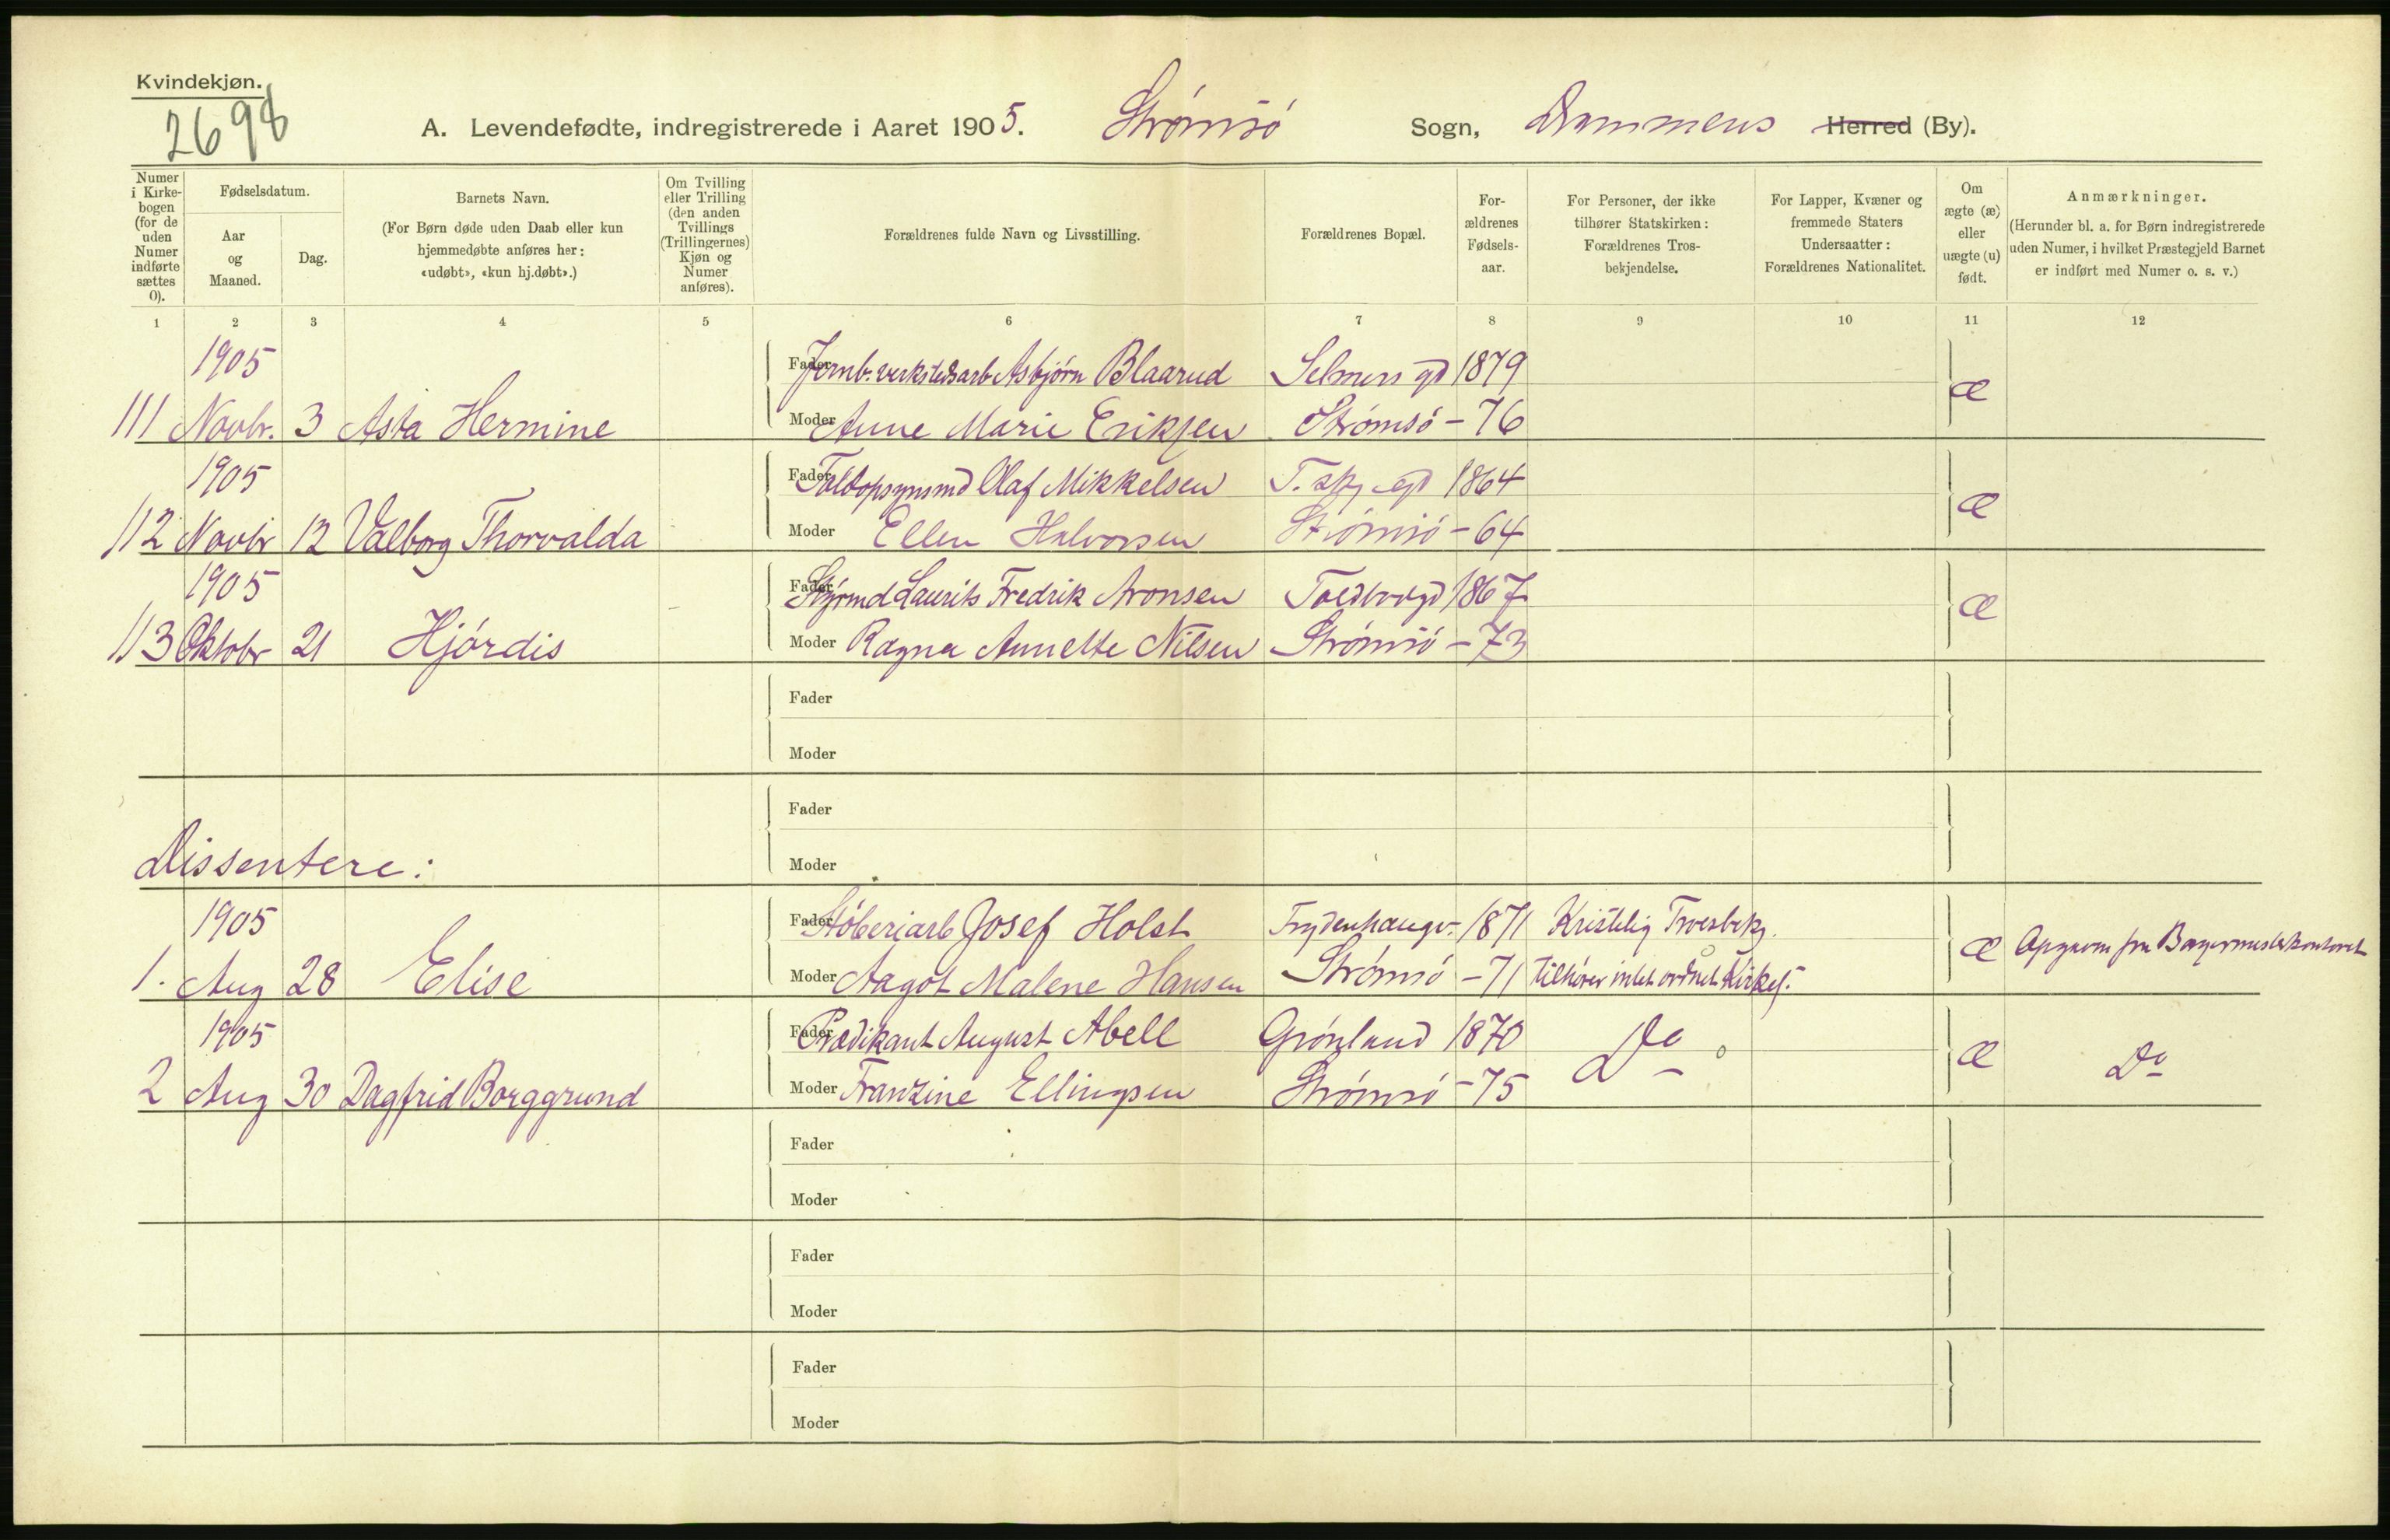 Kvindekjøn.
2698
A. Levendefødte, indregistrerede i Aaret 1905. Strømsö Sogn, Drammens Herred (By).
Numer i Kirkebogen (for de uden Numer indførte sættes 0).
Fødselsdatum.
Aar og Maaned.
Dag.
Barnets Navn.
(For Børn døde uden Daab eller kun hjemmedøbte anføres her: «udøbt», «kun hj.døbt».)
Om Tvilling eller Trilling (den anden Tvillings (Trillingernes) Kjøn og Numer anføres).
Forældrenes fulde Navn og Livsstilling.
Forældrenes Bopæl.
Forældrenes Fødselsaar.
For Personer, der ikke tilhører Statskirken: Forældrenes Trosbekjendelse.
For Lapper, Kvæner og fremmede Staters Undersaatter: Forældrenes Nationalitet.
Om ægte (æ) eller uægte (u) født.
Anmærkninger.
(Herunder bl. a. for Børn indregistrerede uden Numer, i hvilket Præstegjeld Barnet er indført med Numer o. s. v.)
1 2 3 4 5 6 7 8 9 10 11 12
1905 Fader Jernb. verkstedsarb Asbjørn Blaarud Selmers gd 1879 æ
111 Novbr. 3 Asta Hermine Moder Anne Marie Eriksen Strømsö - 76
1905 Fader Toldopsynsmd Olaf Mikkelsen 1864 æ
112 Novbr 12 Valborg Thorvalda Moder Ellen Halvorsen Strömsö - 64
1905 Fader Styrmd Laurits Fredrik Aronsen Toldbodgd 1867 æ
113 Oktobr 21 Hjördis Moder Ragna Annette Nilsen Strömsö - 73
Fader
Moder
Fader
Dissentere: Moder
1905 Fader Støberiarb Josef Holst 1871 Kristelig Troesbekj. æ
1. Aug 28 Elise Moder Aagot Malene Hansen Strömsö - 71 tilhører intet ordnet Kirkes.
1905 Fader Prædikant August Abell Grönland 1870 Do æ Do
2 Aug 30 Dagfrid Borggrund Moder Franzine Ellingsen Strömsö - 75
Fader
Moder
Fader
Moder
Fader
Moder